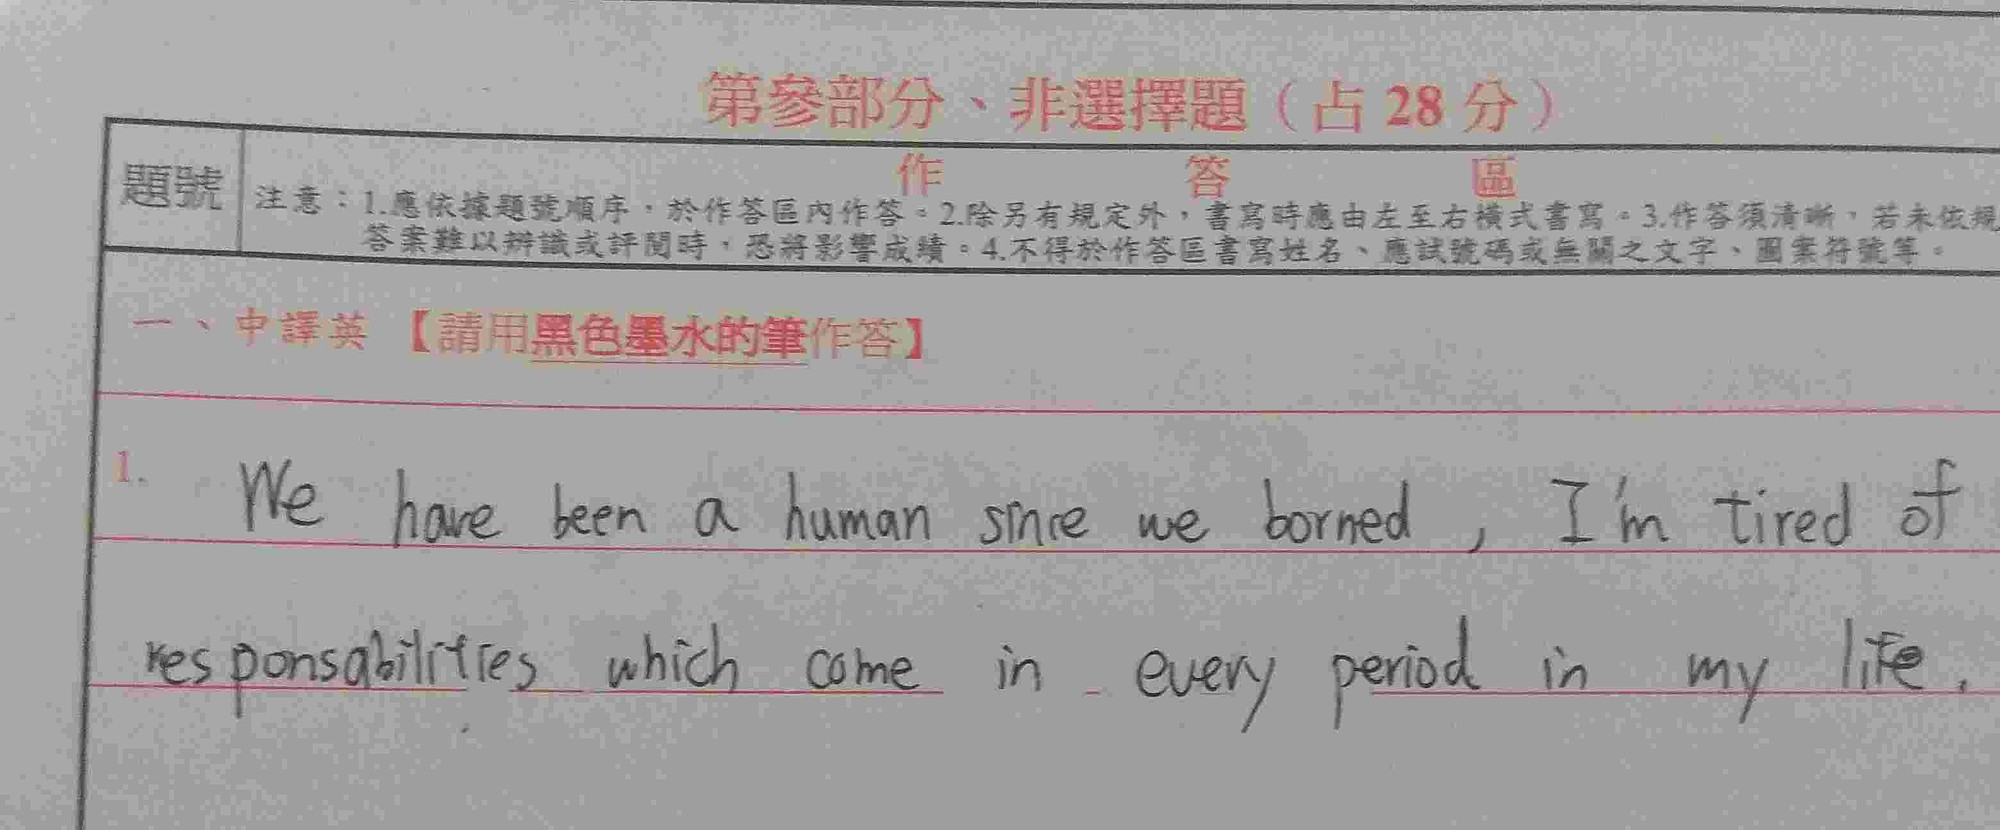 第參部分、非選擇題（占 28 分）
作答區
題號
注意：1.應依據題號順序，於作答區內作答。2.除另有規定外，書寫時應由左至右橫式書寫。3.作答須清晰，若未依規
答案難以辨識或評閱時，恐將影響成績。4.不得於作答區書寫姓名、應試號碼或無關之文字、圖案符號等。
一、中譯英【請用黑色墨水的筆作答】
1. We have been a human since we borned, I'm tired of
responsabilities which come in every period in my life.